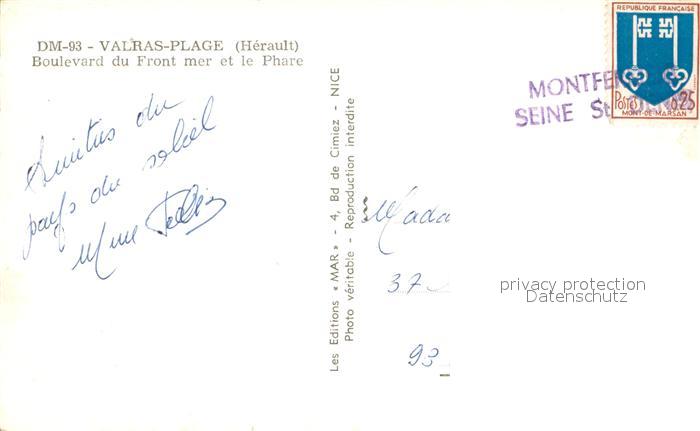 DM-93 - VALRAS-PLAGE (Hérault)
Boulevard du Front mer et le Phare
Amitiés du
pays du soleil
Mme
Les Editions « MAR » - 4, Bd de Cimiez - NICE
Photo véritable - Reproduction interdite
REPUBLIQUE FRANÇAISE
POSTES 0,25
MONT-DE-MARSAN
MONTFE
SEINE St
Mada
37
93
privacy protection
Datenschutz